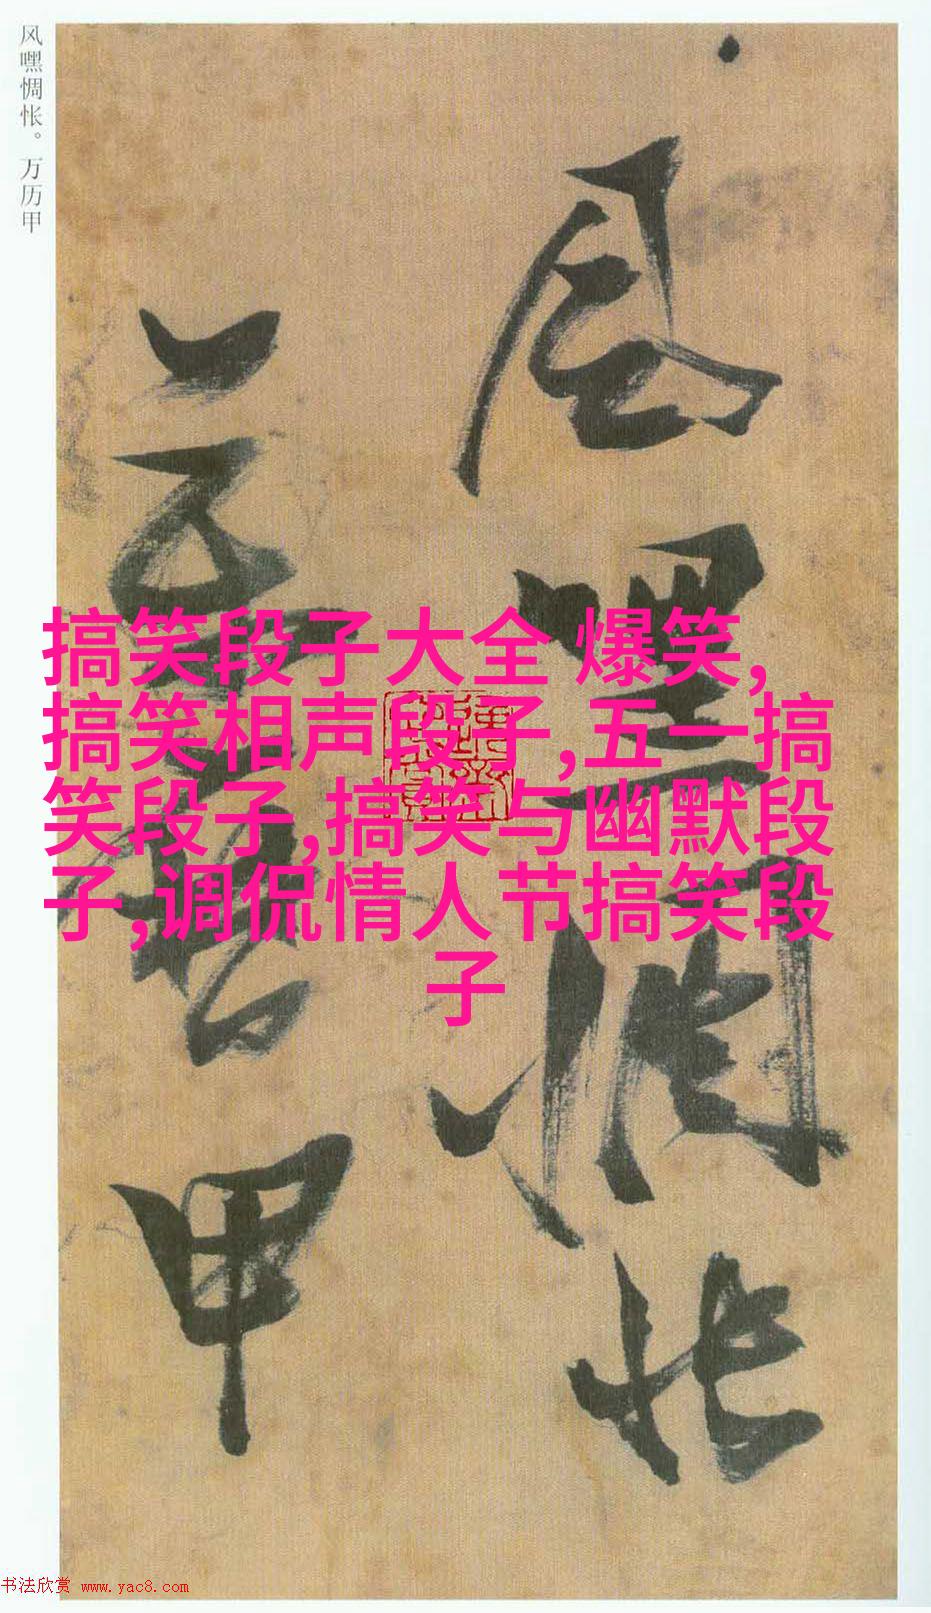 风嘿惆怅。万历甲
风嘿惆
怅
万历甲
搞笑段子大全 爆笑,
搞笑相声段子,五一搞
笑段子,搞笑与幽默段
子,调侃情人节搞笑段
子
书法欣赏 www.yac8.com